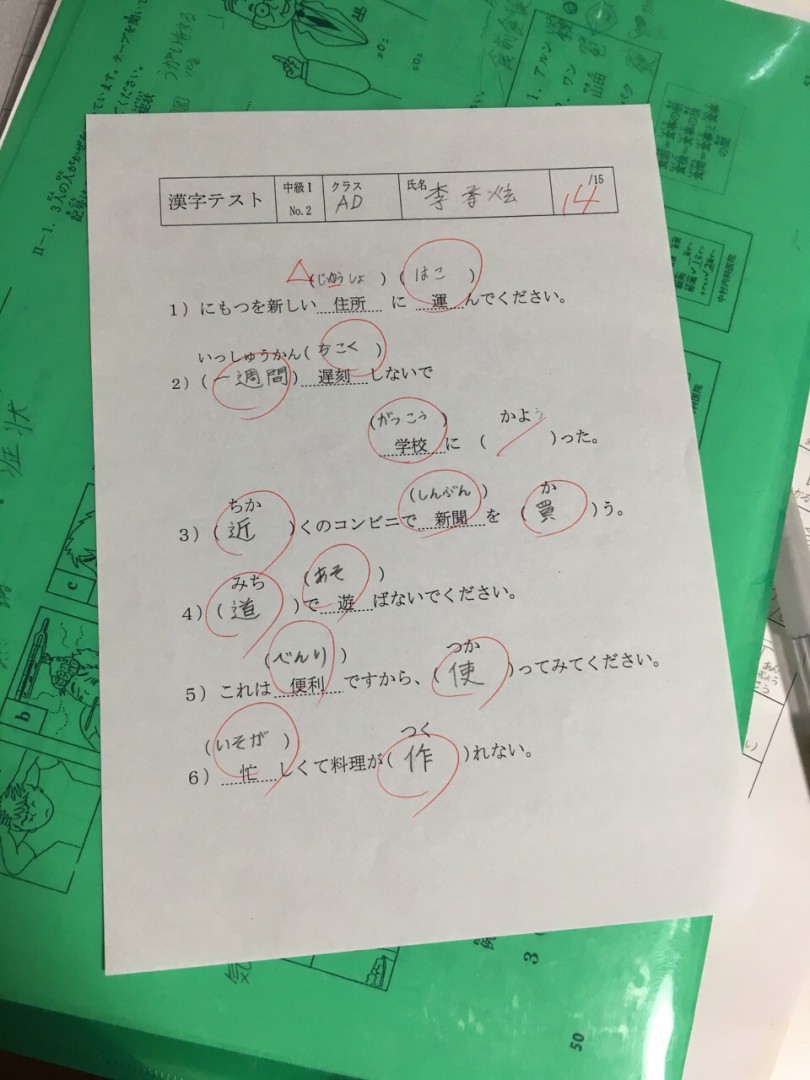 漢字テスト 中級Ⅰ No.2 クラス AD 氏名 李 14 /15
(じゅうしょ) (はこ)
1) にもつを新しい 住所 に 運 んでください。
いっしゅうかん (ちこく)
2) (一週間) 遅刻 しないで
(がっこう) かよう
学校 に ( )った。
ちか (しんぶん) か
3) (近)くのコンビニで 新聞 を (買)う。
みち (あそ)
4) (道)で 遊 ばないでください。
(べんり) つか
5) これは 便利 ですから、(使)ってみてください。
(いそが) つく
6) 忙 しくて料理が(作)れない。
Ⅱ-1.
うがいをする
1. アルン
ワン
山田
中村内科医院
症状
c
b
3
50